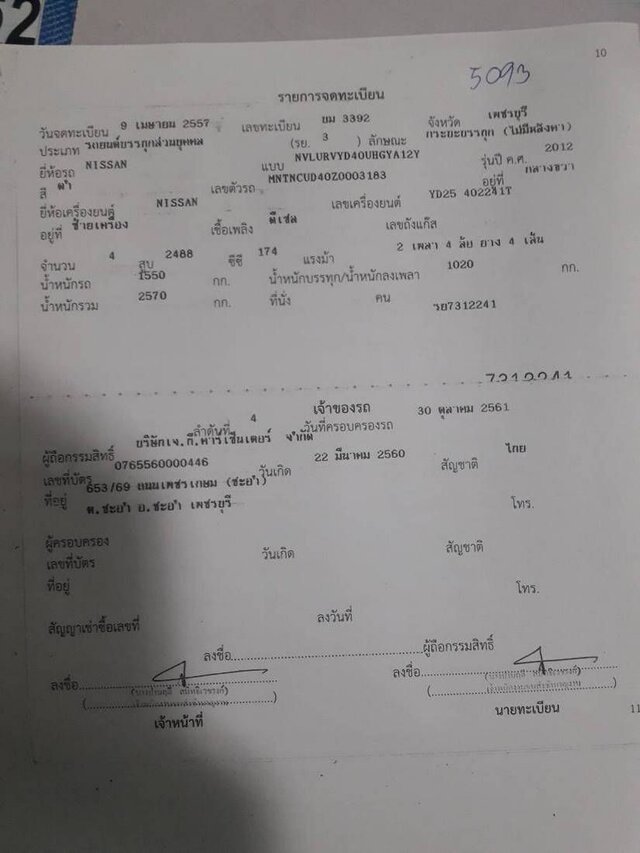 52
10
5093
รายการจดทะเบียน
วันจดทะเบียน 9 เมษายน 2557 เลขทะเบียน ยม 3392 จังหวัด เพชรบุรี
ประเภท รถยนต์บรรทุกส่วนบุคคล (รย. 3 ) ลักษณะ กระบะบรรทุก (ไม่มีหลังคา)
ยี่ห้อรถ NISSAN แบบ NVLURVYD40UHGYA12Y รุ่นปี ค.ศ. 2012
สี ดำ เลขตัวรถ MNTNCUD40Z0003183 อยู่ที่ กลางขวา
ยี่ห้อเครื่องยนต์ NISSAN เลขเครื่องยนต์ YD25 402241T
อยู่ที่ ซ้ายเครื่อง เชื้อเพลิง ดีเซล เลขถังแก๊ส
จำนวน 4 สูบ 2488 ซีซี 174 แรงม้า 2 เพลา 4 ล้อ ยาง 4 เส้น
น้ำหนักรถ 1550 กก. น้ำหนักบรรทุก/น้ำหนักลงเพลา 1020 กก.
น้ำหนักรวม 2570 กก. ที่นั่ง คน
รย7312241
7312241
เจ้าของรถ
ลำดับที่ 4 วันที่ครอบครองรถ 30 ตุลาคม 2561
ผู้ถือกรรมสิทธิ์ บริษัทเจ.ที.คาร์เซ็นเตอร์ จำกัด
เลขที่บัตร 0765560000446 วันเกิด 22 มีนาคม 2560 สัญชาติ ไทย
ที่อยู่ 653/69 ถนนเพชรเกษม (ชะอำ)
ต.ชะอำ อ.ชะอำ เพชรบุรี โทร.
ผู้ครอบครอง
เลขที่บัตร วันเกิด สัญชาติ
ที่อยู่ โทร.
สัญญาเช่าซื้อเลขที่ ลงวันที่
ลงชื่อ ผู้ถือกรรมสิทธิ์
ลงชื่อ ลงชื่อ
เจ้าหน้าที่ นายทะเบียน
11